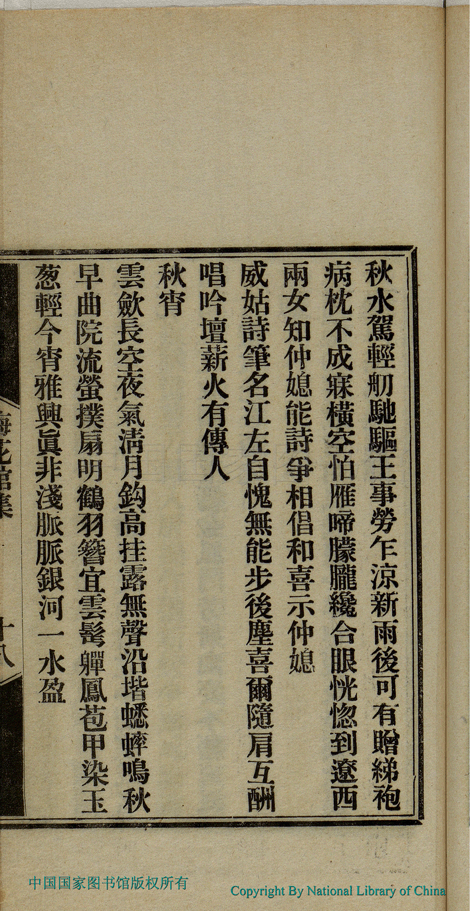 秋水駕輕舠馳驅王事勞乍涼新雨後可有贈綈袍
病枕不成寐橫空怕雁啼朦朧纔合眼恍惚到遼西
兩女知仲媳能詩爭相倡和喜示仲媳
威姑詩筆名江左自愧無能步後塵喜爾隨肩互酬
唱吟壇薪火有傳人
秋宵
雲斂長空夜氣淸月鈎高挂露無聲沿堦蟋蟀鳴秋
早曲院流螢撲扇明鶴羽簪宜雲髩嚲鳳苞甲染玉
葱輕今宵雅興眞非淺脈脈銀河一水盈
梅花館集
十八
中国国家图书馆版权所有
Copyright By National Library of China